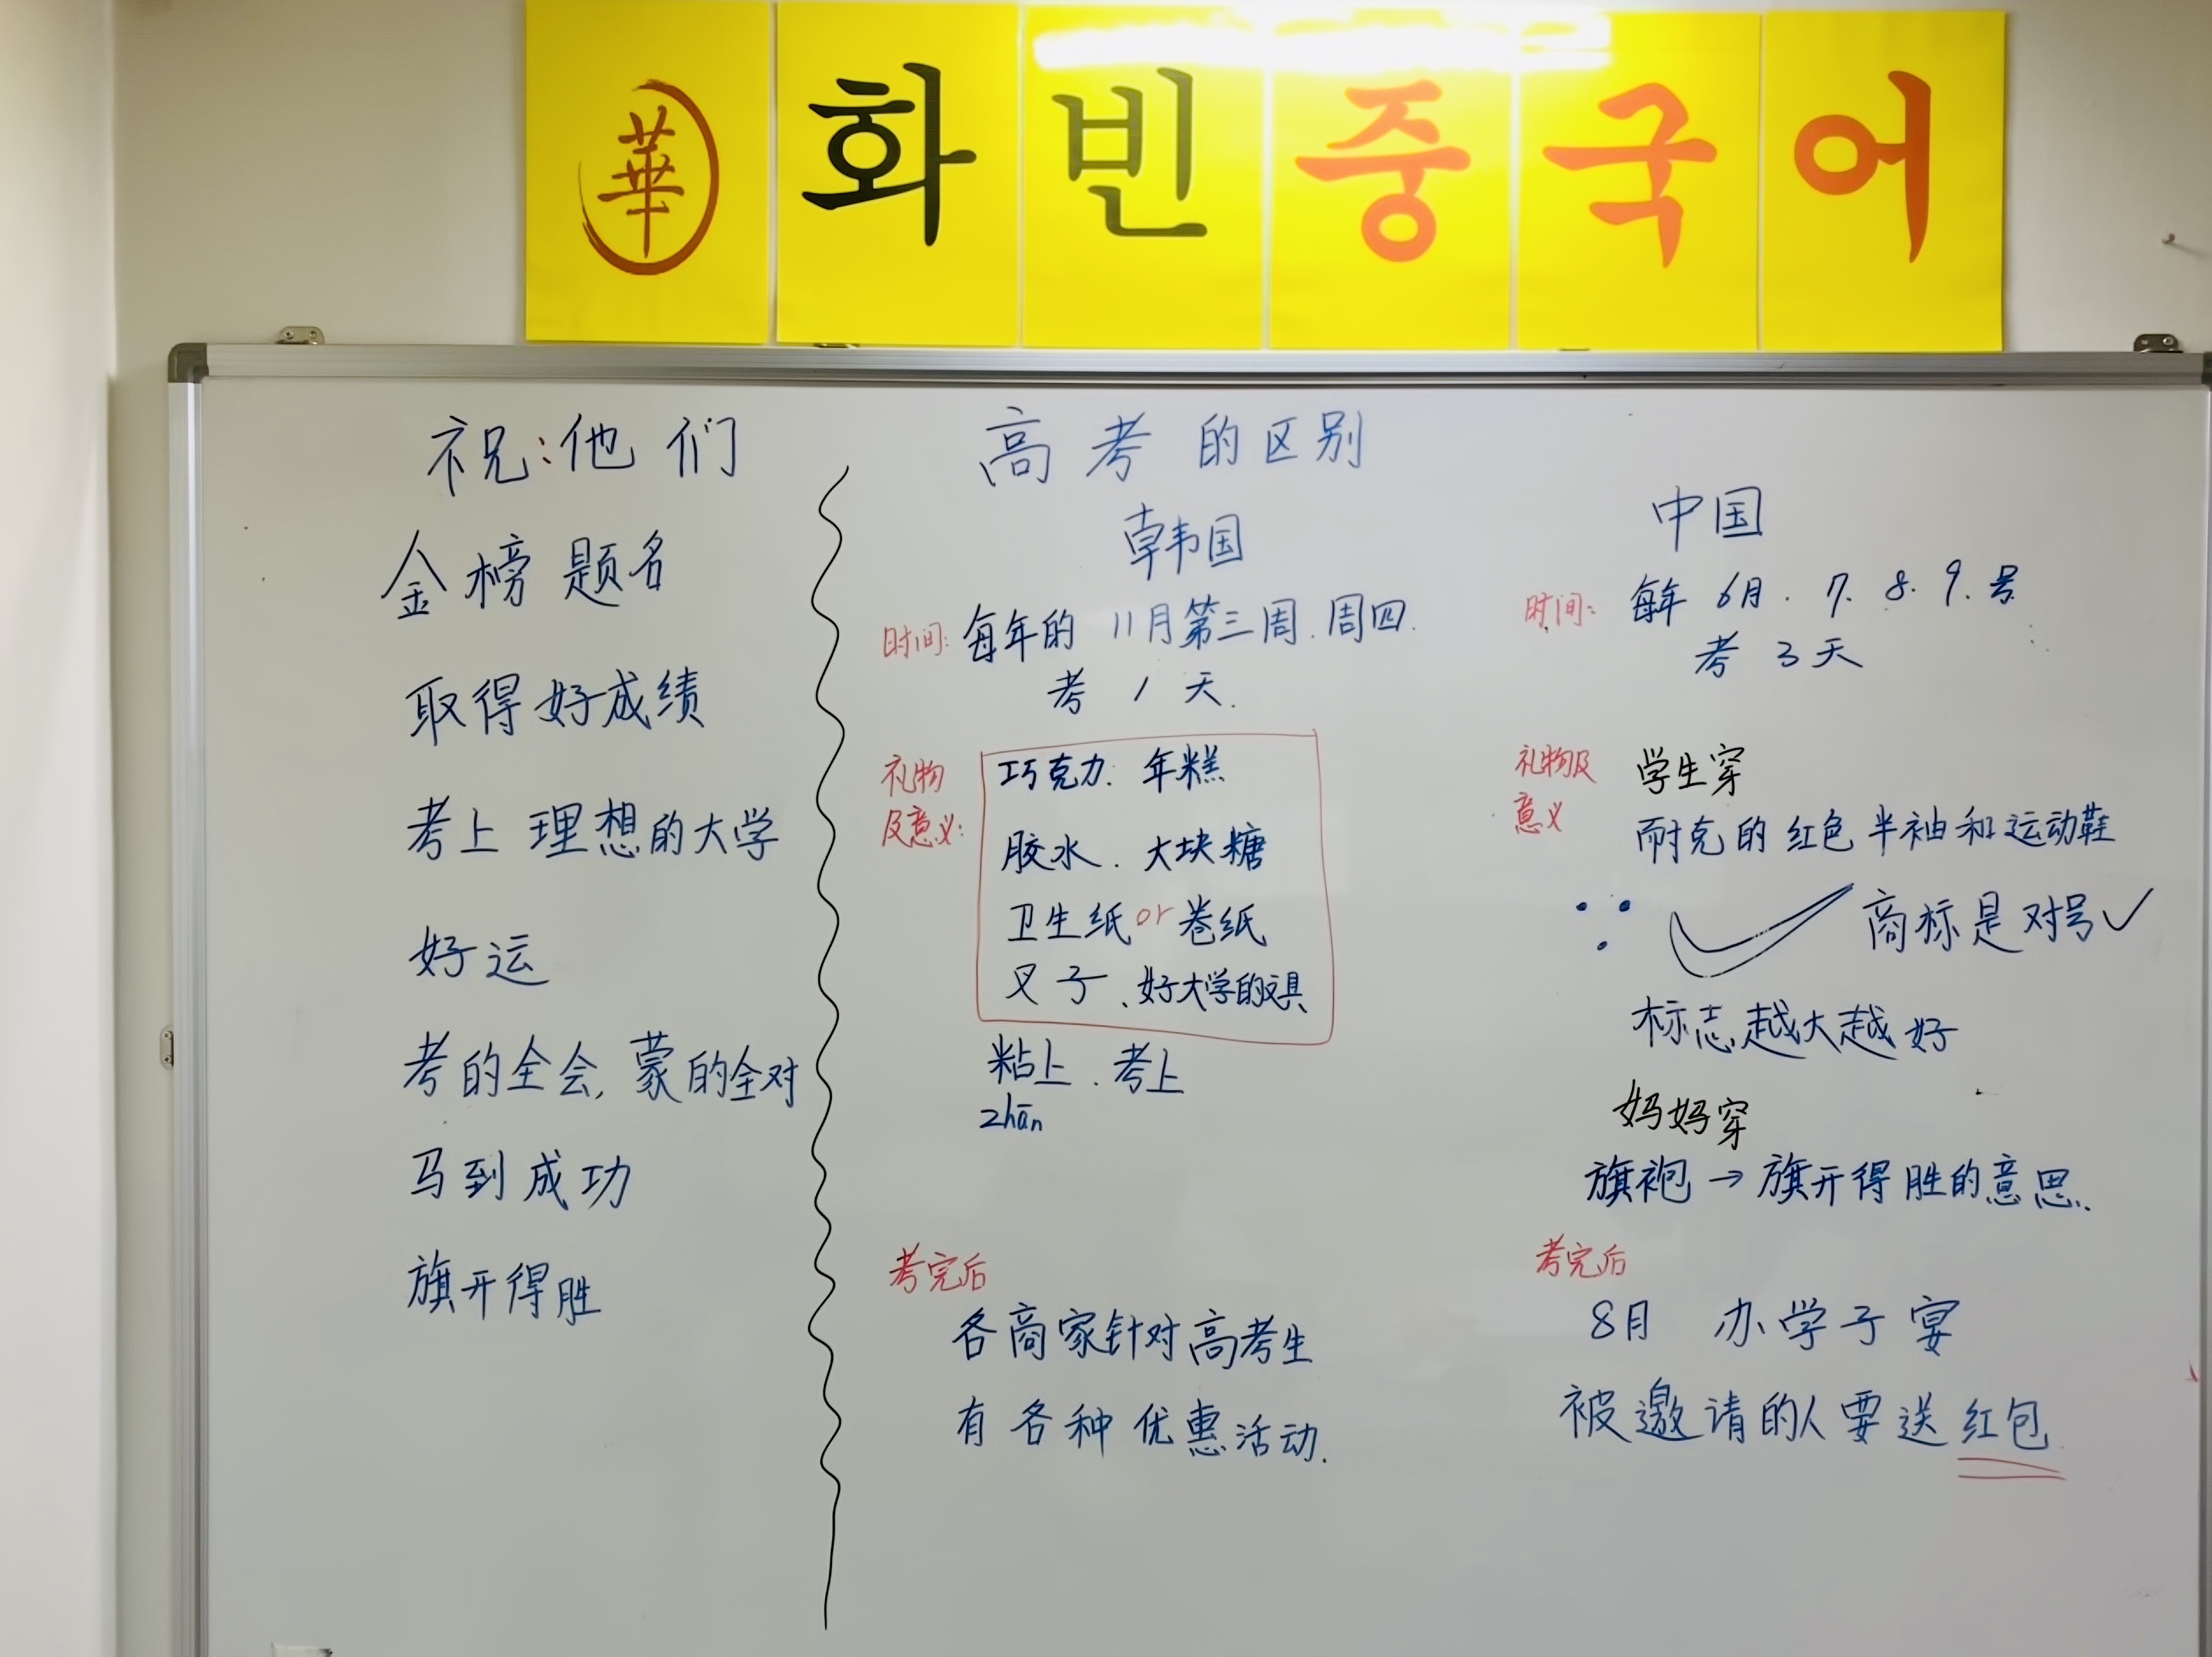 華 화빈중국어
祝:他们
金榜题名
取得好成绩
考上理想的大学
好运
考的全会,蒙的全对
马到成功
旗开得胜
高考的区别
韩国
时间: 每年的 11月第三周.周四.
考 1 天.
礼物及意义:
巧克力. 年糕
胶水. 大块糖
卫生纸or卷纸
叉子、好大学的文具
粘上. 考上
zhān
考完后
各商家针对高考生
有各种优惠活动.
中国
时间: 每年 6月. 7. 8. 9. 号
考 3天
礼物及意义
学生穿
耐克的红色半袖和运动鞋
∵ 商标是对号✓
标志越大越好
妈妈穿
旗袍→旗开得胜的意思.
考完后
8月 办学子宴
被邀请的人要送红包